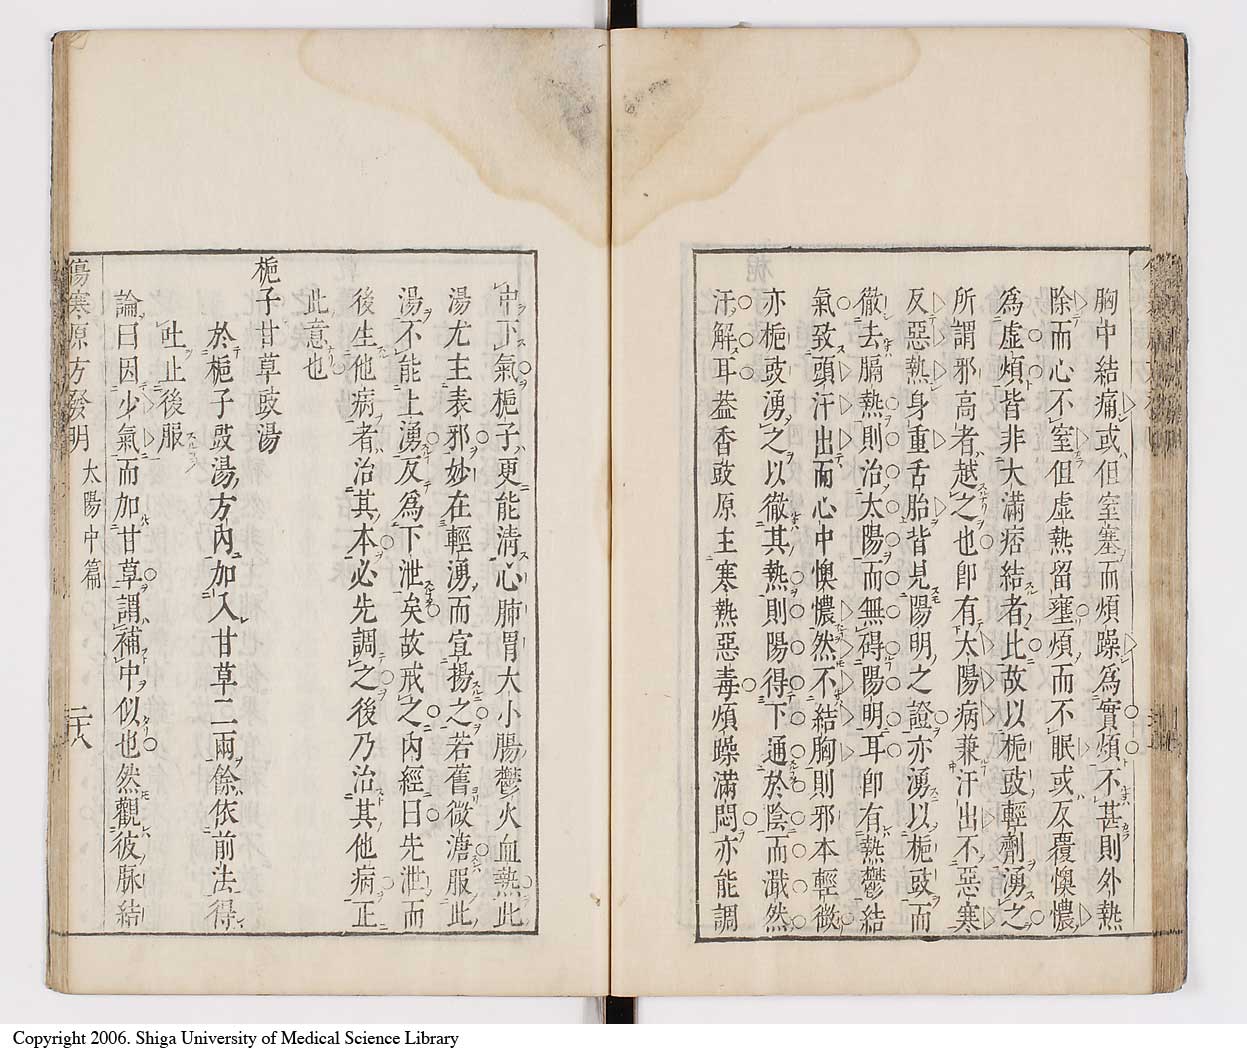 胸中結痛或但窒塞而煩躁爲實煩不甚則外熱
除而心不窒但虛熱留壅煩而不眠或反覆懊憹
爲虛煩皆非大滿痞結者此故以梔豉輕劑湧之
所謂邪高者越之也卽有太陽病兼汗出不惡寒
反惡熱身重舌胎皆見陽明之證亦湧以梔豉而
徹去膈熱則治太陽而無碍陽明耳卽有熱鬱結
氣致頭汗出而心中懊憹然不結胸則邪本輕微
亦梔豉湧之以徹其熱則陽得下通於陰而濈然
汗解耳葢香豉原主寒熱惡毒煩躁滿悶亦能調
中下氣梔子更能清心肺胃大小腸鬱火血熱此
湯尤主表邪妙在輕湧而宣揚之若舊微溏服此
湯不能上湧反爲下泄矣故戒之內經曰先泄而
後生他病者治其本必先調之後乃治其他病正
此意也
梔子甘草豉湯
於梔子豉湯方內加入甘草二兩餘依前法得
吐止後服
論曰因少氣而加甘草謂補中似也然觀彼脉結
傷寒原方發明 太陽中篇 二十八
Copyright 2006. Shiga University of Medical Science Library